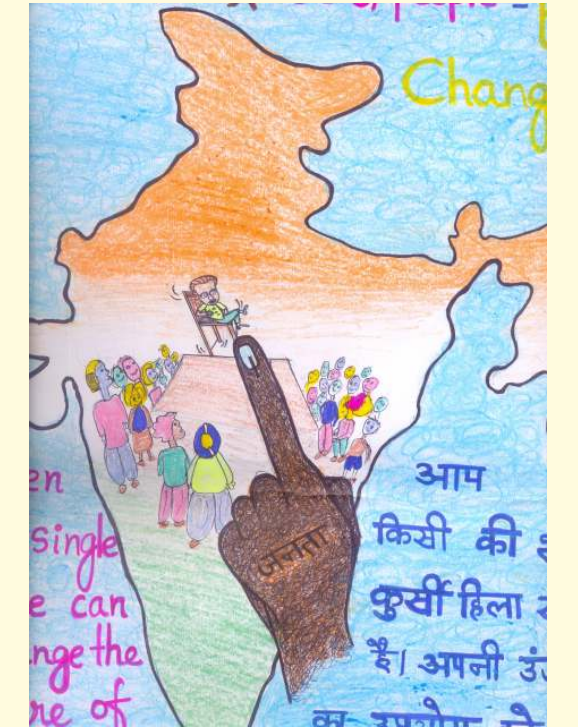 people =
Chang
जनता
en
single
e can
nge the
re of
आप
किसी की
कुर्सी हिला
है। अपनी उं
का उपयोग